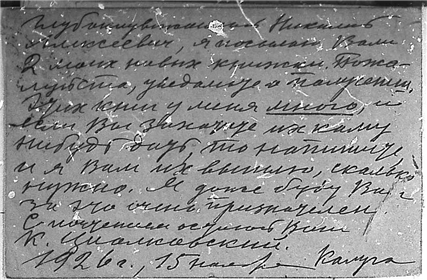 Глубокоуважаемый Николай
Алексеевич, я посылаю Вам
2 моих новых книжки. Пожа-
луйста, уведомьте о получении.
Этих книг у меня много, и
если Вы захотите их кому
нибудь дать то напишите
и я Вам их вышлю, сколько
нужно. И даже буду Вам
за это очень признателен
С почтением остаюсь Ваш
К. Циолковский.
1926 г., 15 ноября Калуга